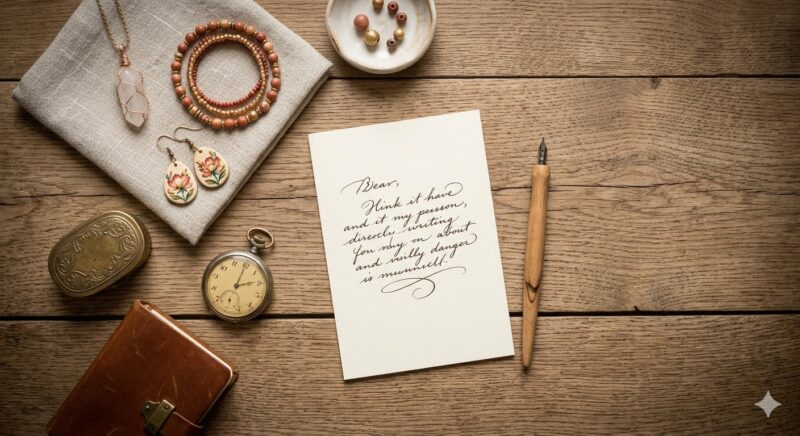 Dear,
Hink it have
and it my pusson,
direocly writing
you nay on about
and vnilly danger
is muunselt.